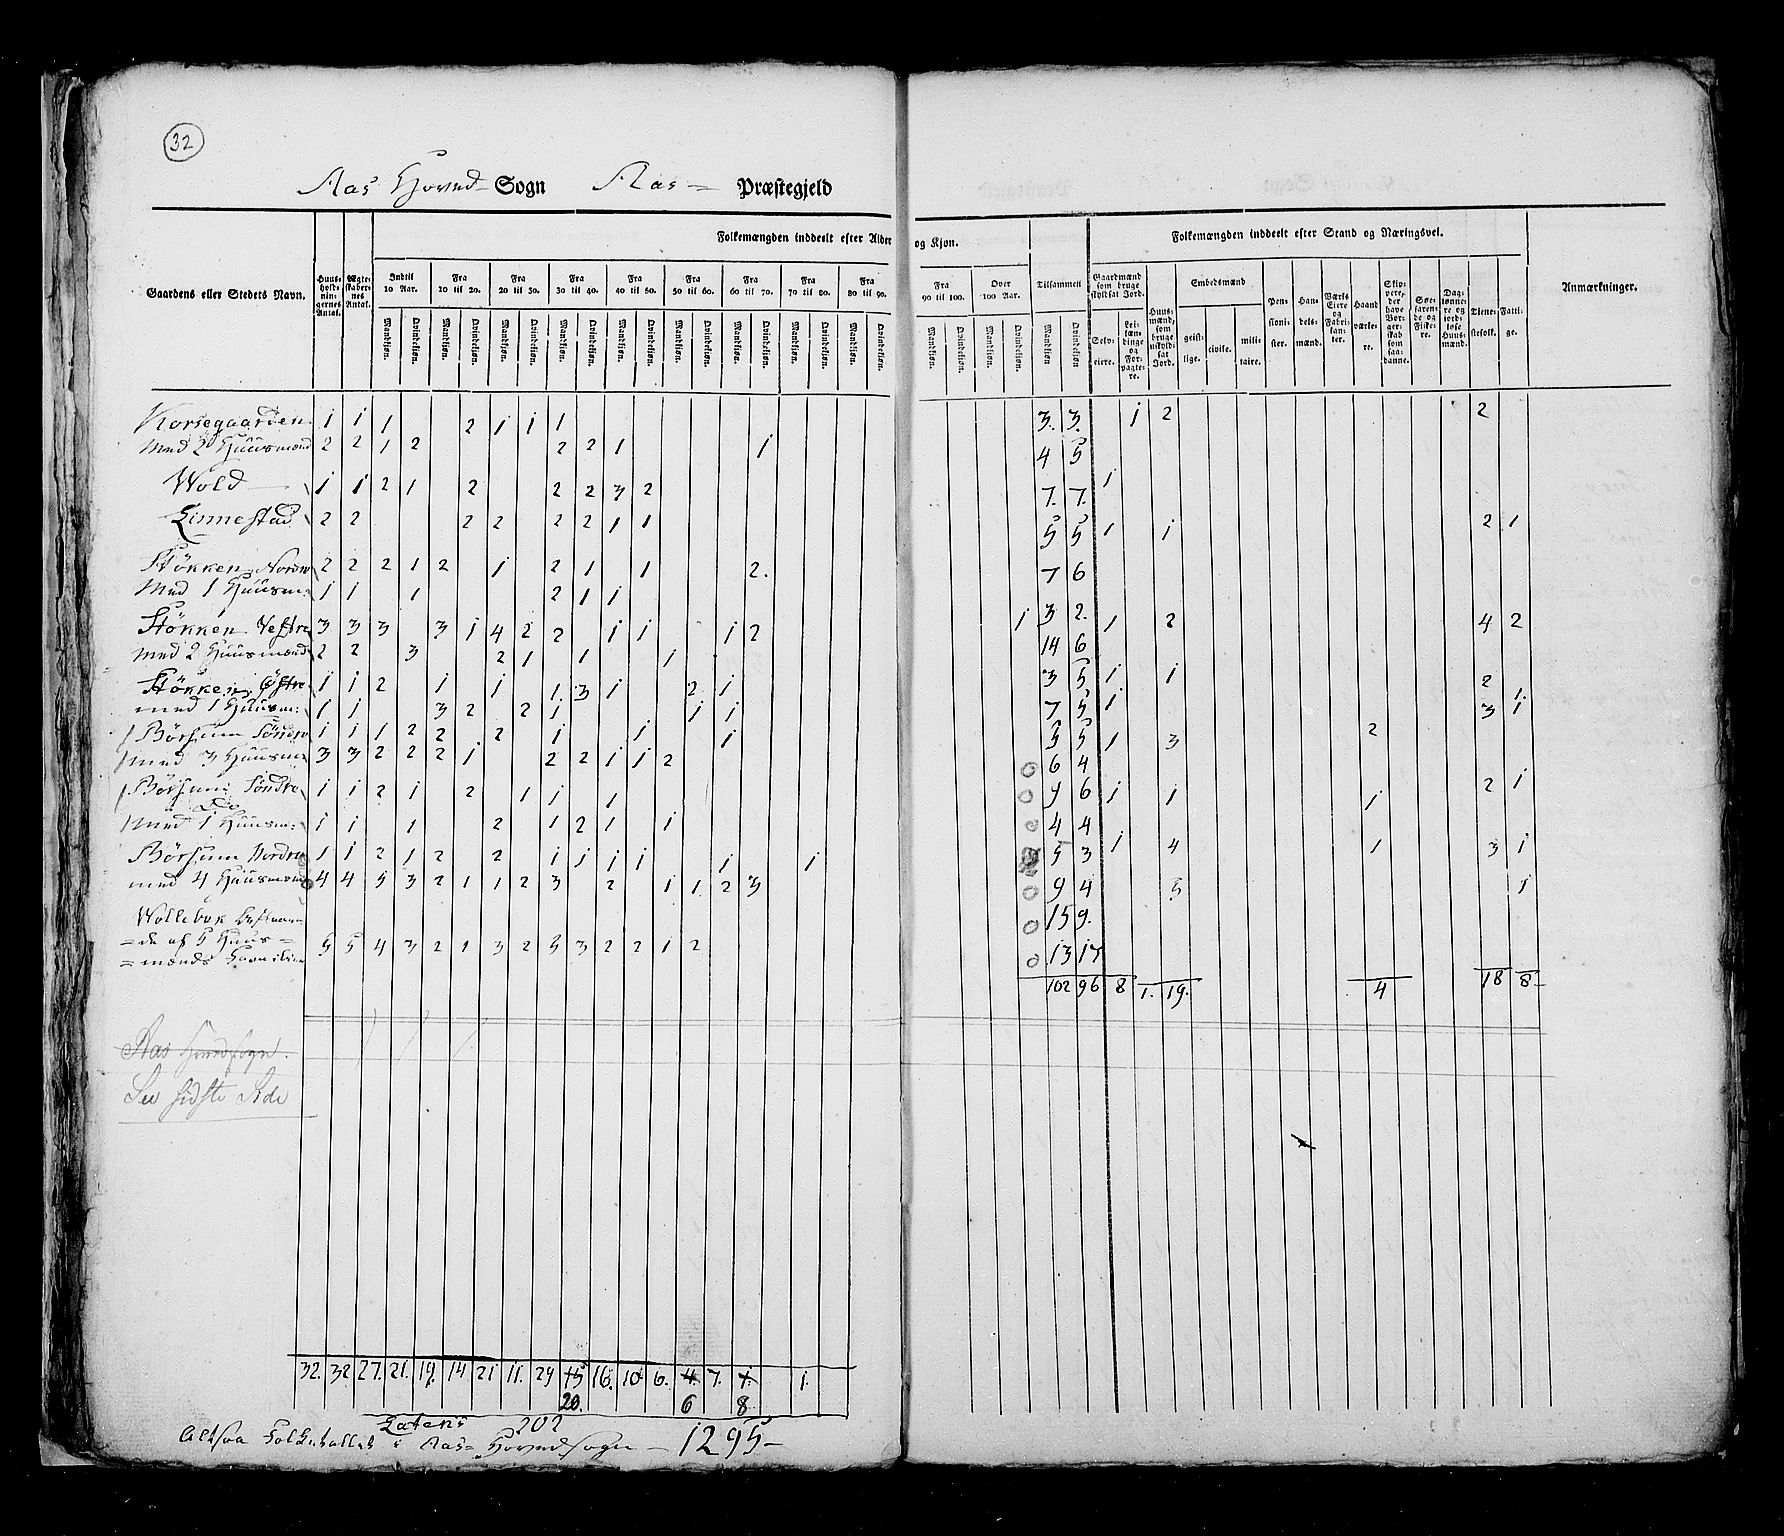 32
Aas Hoved- Sogn Aas = Præstegjeld
Folkemængden inddeelt efter Alder og Kjøn. Folkemængden inddeelt efter Stand og Næringsvei.
Gaardens eller Stedets Navn. Huus-holdnin-gernes Antal. Ægte-skaber-nes Antal. Indtil 10 Aar. Fra 10 til 20. Fra 20 til 30. Fra 30 til 40. Fra 40 til 50. Fra 50 til 60. Fra 60 til 70. Fra 70 til 80. Fra 80 til 90. Fra 90 til 100. Over 100 Aar. Tilsammen Gaardmænd som bruge skyldsat Jord. Huus-mænd, som bruge uskyld-sat Jord. Embedsmænd Pen-sioni-ster. Han-dels-mænd. Værks Eiere og Fabri-kan-ter. Haand-værke-re. Skip-pere, der have Bor-ger-skab som saa-danne. Søe-faren-de og Fiske-re. Dag-lønne-re og jord-løse Huus-mænd. Tjene-stefolk. Fatti-ge. Anmærkninger.
Mandkjøn. Qvindekjøn. Mandkjøn. Qvindekjøn. Mandkjøn. Qvindekjøn. Mandkjøn. Qvindekjøn. Mandkjøn. Qvindekjøn. Mandkjøn. Qvindekjøn. Mandkjøn. Qvindekjøn. Mandkjøn. Qvindekjøn. Mandkjøn. Qvindekjøn. Mandkjøn. Qvindekjøn. Mandkjøn. Qvindekjøn. Mandkjøn. Qvindekjøn. Selv-eiere. Lei-læn-dinge og For-pagte-re. geist-lige. civile. mili-taire.
Korsegaarden 1 1 1 2 1 1 1 3. 3. 1 2 2
Med 2 Huusmænd 2 2 1 2 2 2 1 1 4 5
Wold 1 1 2 1 2 2 2 3 2 7. 7. 1
Linnestad 2 2 2 2 2 2 1 1 5 5 1 1 2 1
Stökken Nordre 2 2 2 1 2 1 2 1 1 2. 7 6
Med 1 Huusm: 1 1 1 2 1 1 3 2.
Stökken Vestre 3 3 3 3 1 4 2 2 1 1 1 2 14 6 1 2 4 2
med 2 Huusmænd 2 2 3 2 1 1 1 3 5
Stökken Östre 1 1 2 1 1 1 3 1 2 1 7 5 1 1 2 1.
med 1 Huusm: 1 1 3 2 2 1 1 1 5 5 1 3 1
Börsum Söndre 1 1 1 2 2 2 1 1 1 6 4 1 3 2
med 3 Huusm 3 3 2 2 2 1 2 2 1 1 2 9 6
Börsum Söndre 1 1 2 1 2 1 1 1 4 4 1 1 1 2 1
Do
med 1 Huusm: 1 1 1 2 1 2 1 1 5 3
Börsum Nordre 1 1 2 1 2 2 1 1 1 1 1 1 9 4 1 4 1 3 1
med 4 Huusmænd 4 4 5 3 2 1 1 2 3 2 1 1 2 3 15 9.
Wollebek
= de af 5 Huus =
= mænds Familier 5 5 4 3 2 1 3 2 5 3 2 2 1 2 13 17
5 1
102 96 8 1. 19. 4 18 8
Aas Hovedsogn.
See sidste Side
32. 32 27. 21. 19. 14 21 11. 24 15 16. 10 6. 4. 7. 7. 1.
20. 6 8
Latens 202
Altsaa Folketallet i Aas- Hovedsogn — 1295-